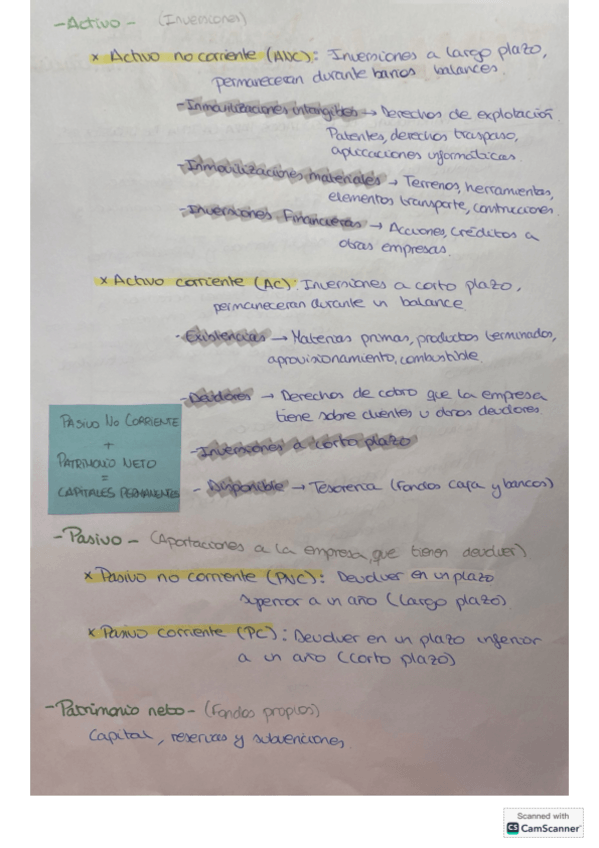 - Activo - (Inversiones)
x Activo no corriente (ANC): Inversiones a largo plazo,
permaneceran durante barios balances.
- Inmovilizaciones intangibles → Derechos de explotación
Patentes, derechos traspaso,
aplicaciones informáticas.
- Inmovilizaciones materiales → Terrenos, herramientas,
elementos transporte, construcciones.
- Inversiones Financieras → Acciones, créditos a
otras empresas.
x Activo corriente (AC): Inversiones a corto plazo,
permaneceran durante un balance
- Existencias → Materias primas, productos terminados,
aprovisionamiento, combustible.
- Deudores → Derechos de cobro que la empresa
tiene sobre clientes u otros deudores
- Inversiones a corto plazo
- Disponible → Tesoreria (fondos caja y bancos)
PASIVO NO CORRIENTE
+
PATRIMONIO NETO
=
CAPITALES PERMANENTES
- Pasivo - (Aportaciones a la empresa, que tienen devolver)
x Pasivo no corriente (PNC): Devolver en un plazo
superior a un año (largo plazo)
x Pasivo corriente (PC): Devolver en un plazo inferior
a un año (corto plazo)
- Patrimonio neto - (Fondos propios)
Capital, reservas y subvenciones.
Scanned with
CS CamScanner